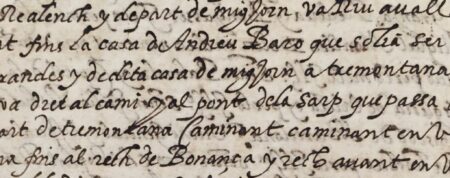 Realench y de part de migjorn, va Riu avall
nt fins la casa de Andreu Baro que solia ser
randes y de dita casa de migjorn a tremontana
va dret al cami y al pont de la sarp que passa
part de tremontana caminant caminant en v
na fins al rech de Bonança y rech avant en